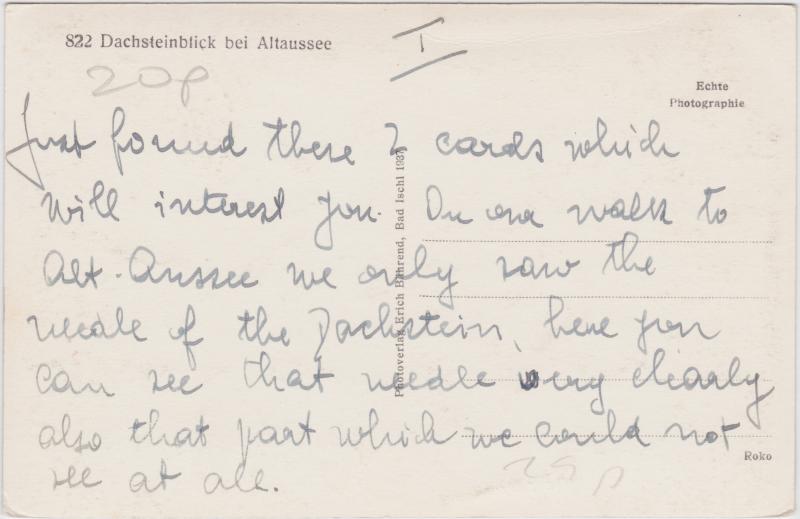 822 Dachsteinblick bei Altaussee
I
20p
Echte
Photographie
Just found these 2 cards which
will interest you. On our walk to
Alt-Aussee we only saw the
neale of the Dachstein, here you
can see that needle very clearly
also that part which we could not
see at all.
Photoverlag Erich Bährend, Bad Ischl 1937
Roko
25p